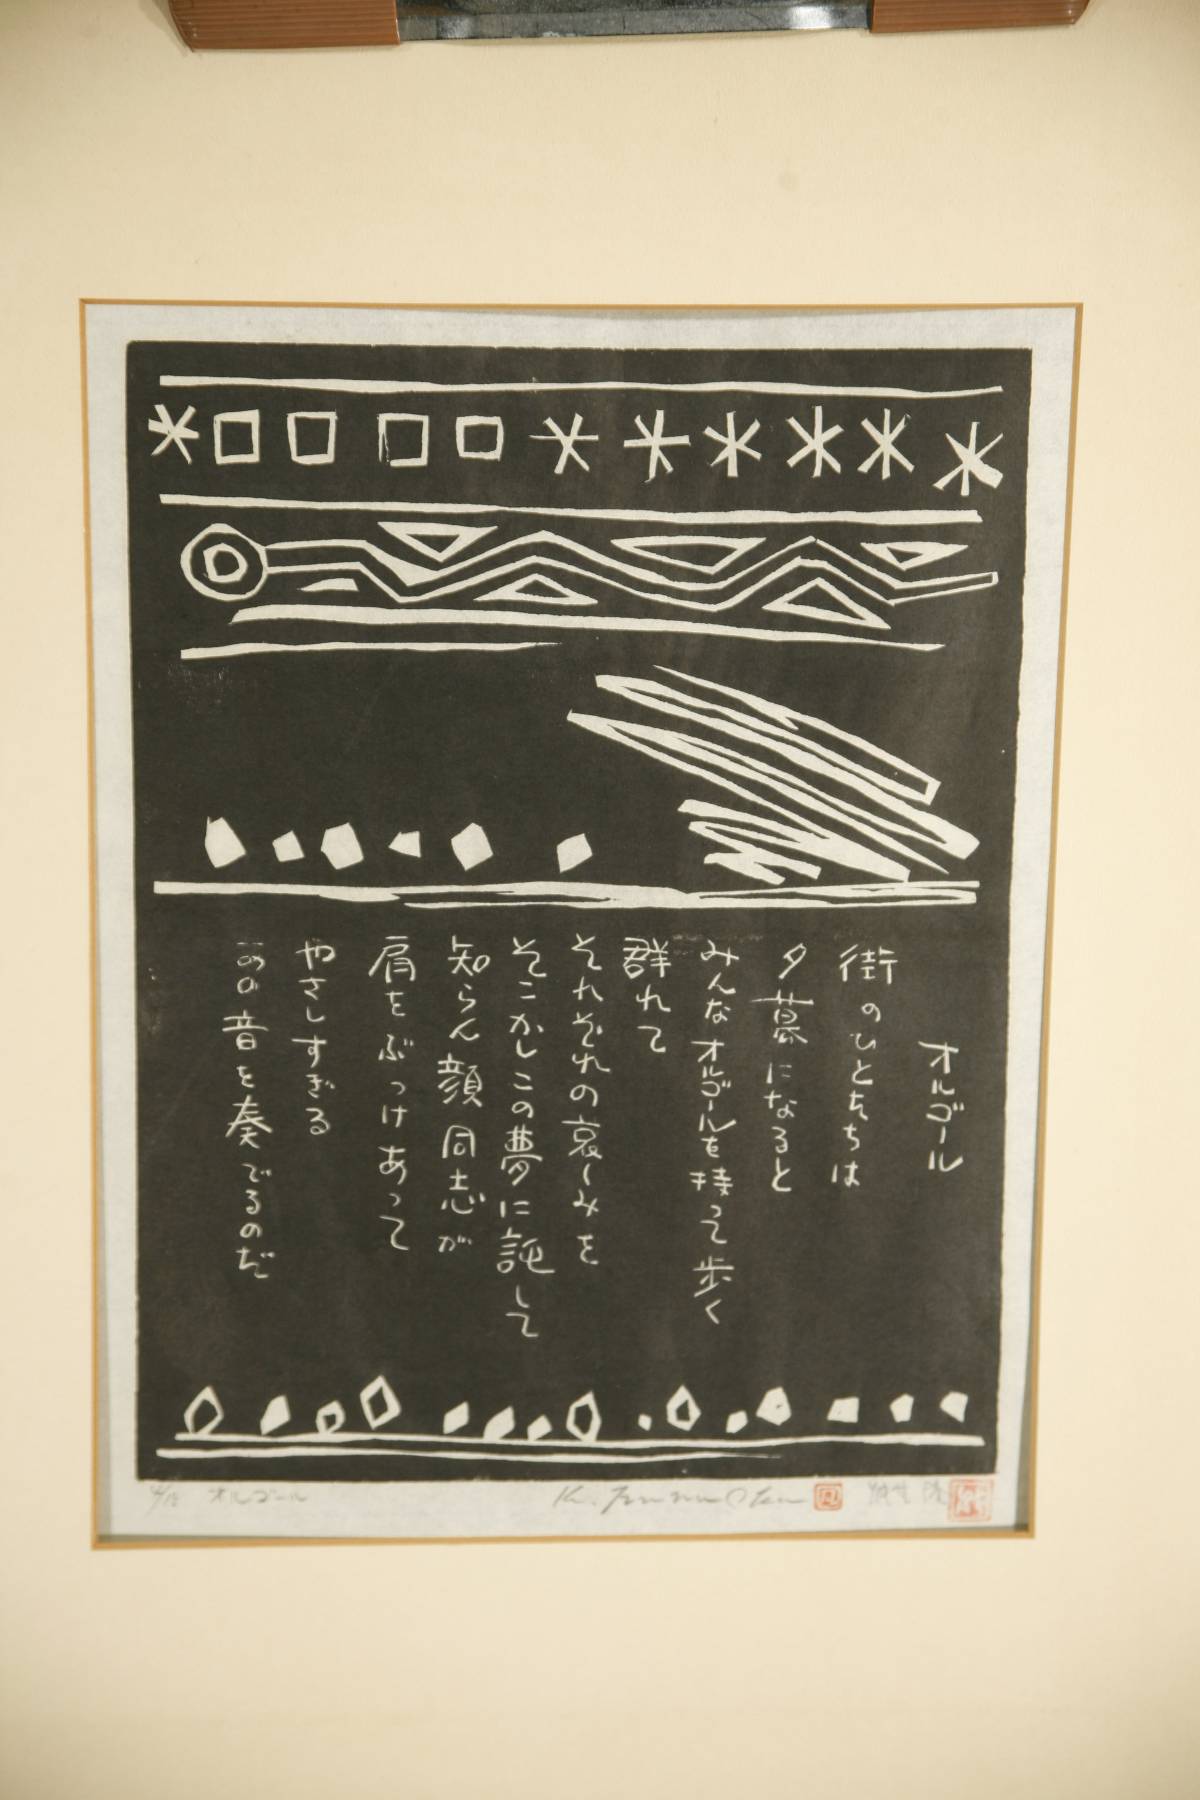 オルゴール
街のひとたちは
夕暮になると
みんなオルゴールを持って歩く
群れて
それぞれの哀しみを
そこかしこの夢に託して
知らん顔同志が
肩をぶっけあって
やさしすぎる
あの音を奏でるのだ
オルゴール